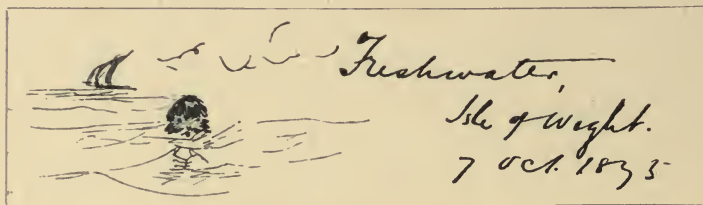 Freshwater,
Isle of Wight.
7 Oct. 1895